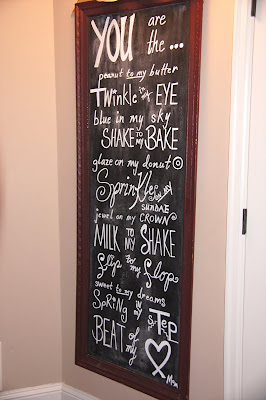 YOU are the...
peanut to my butter
Twinkle in my EYE
blue in my sky
SHAKE to my BAKE
glaze on my donut
Sprinkles on my
SUNDAE
jewel on my CROWN
MILK TO MY SHAKE
flip to my flop
sweet to my dreams
SPRING in my STEP
BEAT of my
Mom